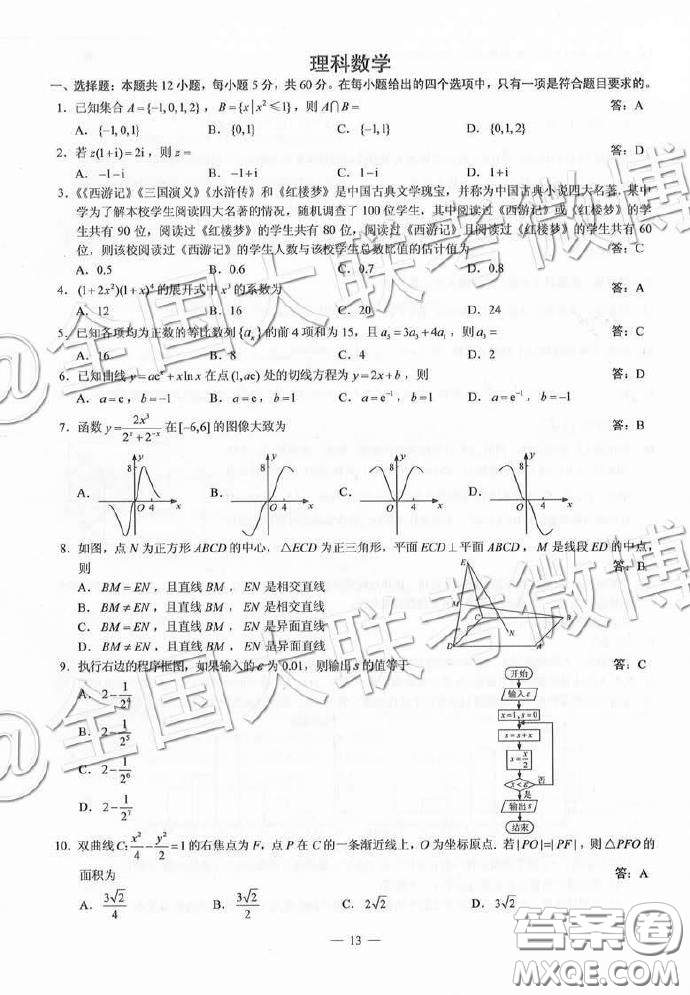 理科数学
一、选择题：本题共12小题，每小题5分，共60分。在每小题给出的四个选项中，只有一项是符合题目要求的。
1．已知集合A={-1,0,1,2}，B={x|x²≤1}，则A∩B= 答：A
A．{-1,0,1} B．{0,1} C．{-1,1} D．{0,1,2}
2．若z(1+i)=2i，则z= 答：D
A．-1-i B．-1+i C．1-i D．1+i
3．《《西游记》《三国演义》《水浒传》和《红楼梦》是中国古典文学瑰宝，并称为中国古典小说四大名著．某中
学为了解本校学生阅读四大名著的情况，随机调查了100位学生，其中阅读过《西游记》或《红楼梦》的学
生共有90位，阅读过《红楼梦》的学生共有80位，阅读过《西游记》且阅读过《红楼梦》的学生共有60
位，则该校阅读过《西游记》的学生人数与该校学生总数比值的估计值为 答：C
A．0.5 B．0.6 C．0.7 D．0.8
4．(1+2x²)(1+x)⁴的展开式中x³的系数为 答：A
A．12 B．16 C．20 D．24
5．已知各项均为正数的等比数列{aₙ}的前4项和为15，且a₅=3a₃+4a₁，则a₃= 答：C
A．16 B．8 C．4 D．2
6．已知曲线y=aeˣ+xlnx在点(1,ae)处的切线方程为y=2x+b，则 答：D
A．a=e，b=-1 B．a=e，b=1 C．a=e⁻¹，b=1 D．a=e⁻¹，b=-1
7．函数y=2x³/(2ˣ+2⁻ˣ)在[-6,6]的图像大致为 答：B
A． y 8 O 4 x B． y 8 O 4 x C． y 8 O 4 x D． y 8 O 4 x
8．如图，点N为正方形ABCD的中心，△ECD为正三角形，平面ECD⊥平面ABCD，M是线段ED的中点，
则 答：B
A．BM=EN，且直线BM，EN是相交直线
B．BM≠EN，且直线BM，EN是相交直线
C．BM=EN，且直线BM，EN是异面直线
D．BM≠EN，且直线BM，EN是异面直线
E
M
C
B
N
D
A
9．执行右边的程序框图，如果输入的ε为0.01，则输出s的值等于 答：C
A．2-1/2⁴
B．2-1/2⁵
C．2-1/2⁶
D．2-1/2⁷
开始
输入ε
x=1,s=0
s=s+x
x=x/2
x<ε 否
是
输出s
结束
10．双曲线C：x²/4-y²/2=1的右焦点为F，点P在C的一条渐近线上，O为坐标原点．若|PO|=|PF|，则△PFO的
面积为 答：A
A．3√2/4 B．3√2/2 C．2√2 D．3√2
— 13 —
@全国大联考微博
@全国大联考微博
答案圈
MXQE.COM